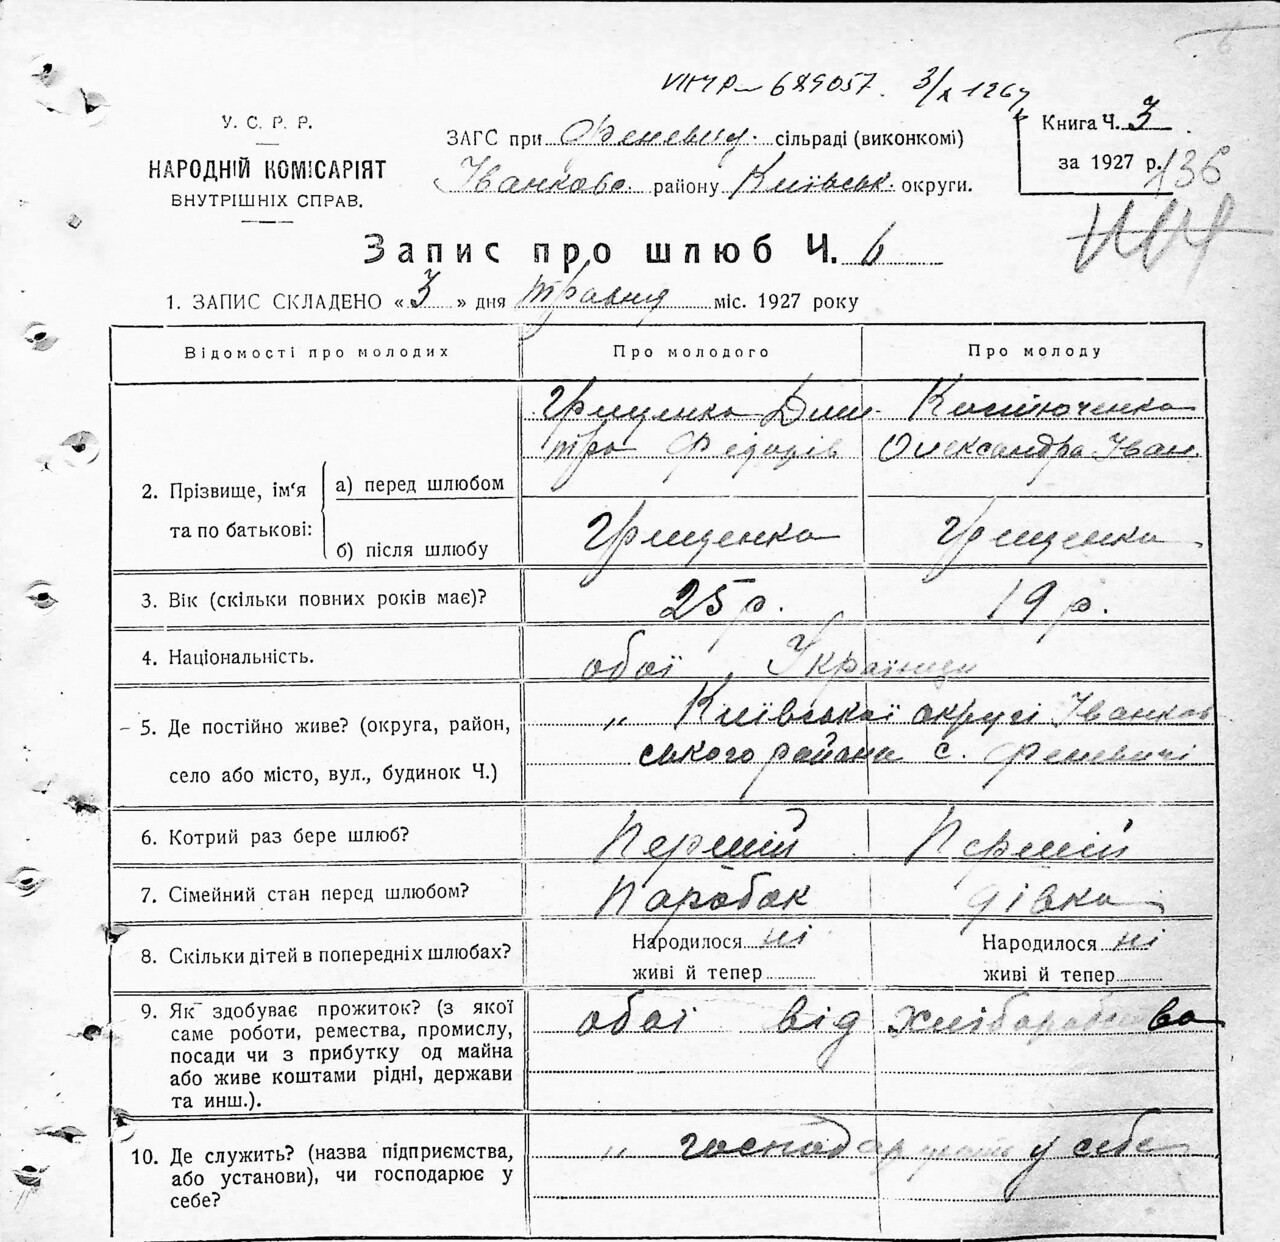 689057. 3/X 1267
У. С. Р. Р.
НАРОДНІЙ КОМІСАРІЯТ
ВНУТРІШНІХ СПРАВ.
ЗАГС при Феневиц. сільраді (виконкомі)
Іванково району Київськ. округи.
Книга Ч. 3
за 1927 р.
136
Запис про шлюб Ч. 6
1. ЗАПИС СКЛАДЕНО « 3 » дня травня міс. 1927 року
Відомості про молодих
Про молодого
Про молоду
2. Прізвище, ім'я та по батькові:
а) перед шлюбом
Дми-
тро Федосів
Костюченко
Олександра Іван.
б) після шлюбу
Грищенко
Грищенко
3. Вік (скільки повних років має)?
25 р.
19 р.
4. Національність.
обої Українці
5. Де постійно живе? (округа, район,
село або місто, вул., будинок Ч.)
„ Київської округі Іванков
ського района с. Феневичі
6. Котрий раз бере шлюб?
Перший
Перший
7. Сімейний стан перед шлюбом?
Паробок
дівка
8. Скільки дітей в попередніх шлюбах?
Народилося ні
живі й тепер
Народилося ні
живі й тепер
9. Як здобуває прожиток? (з якої
саме роботи, ремества, промислу,
посади чи з прибутку од майна
або живе коштами рідні, держави
та инш.).
обої від хліборобства
10. Де служить? (назва підприємства,
або установи), чи господарює у
себе?
„ господарують у себе